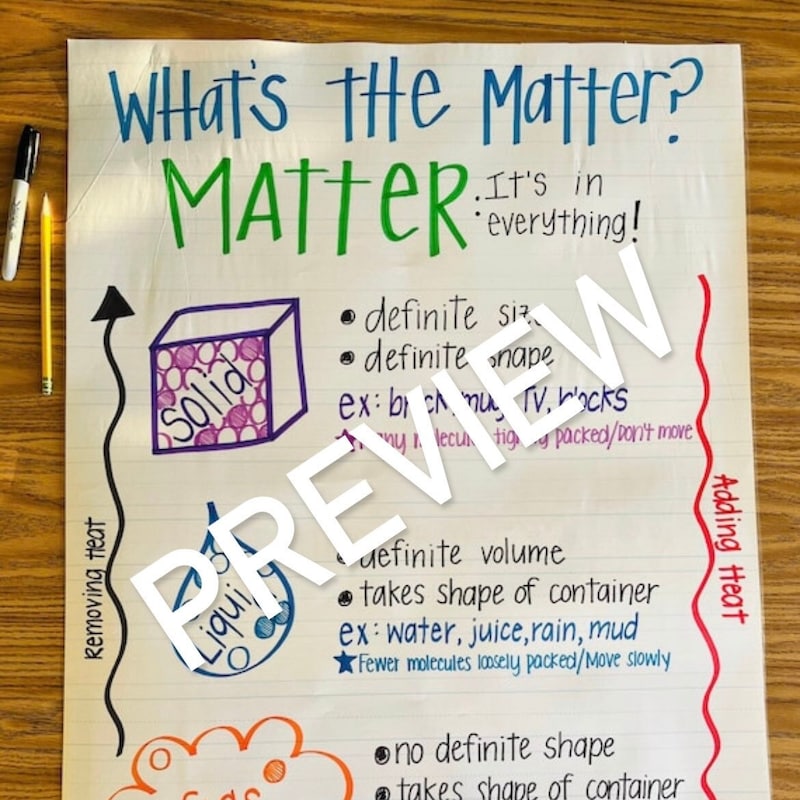 What's the Matter?
MATTER: It's in
everything!
• definite size
• definite shape
Solid
ex: brick, mug, TV, blocks
★ Many molecules tightly packed/Don't move
Removing Heat
Adding Heat
PREVIEW
• definite volume
• takes shape of container
Liquid
ex: water, juice, rain, mud
★ Fewer molecules loosely packed/Move slowly
• no definite shape
Gas
• takes shape of container